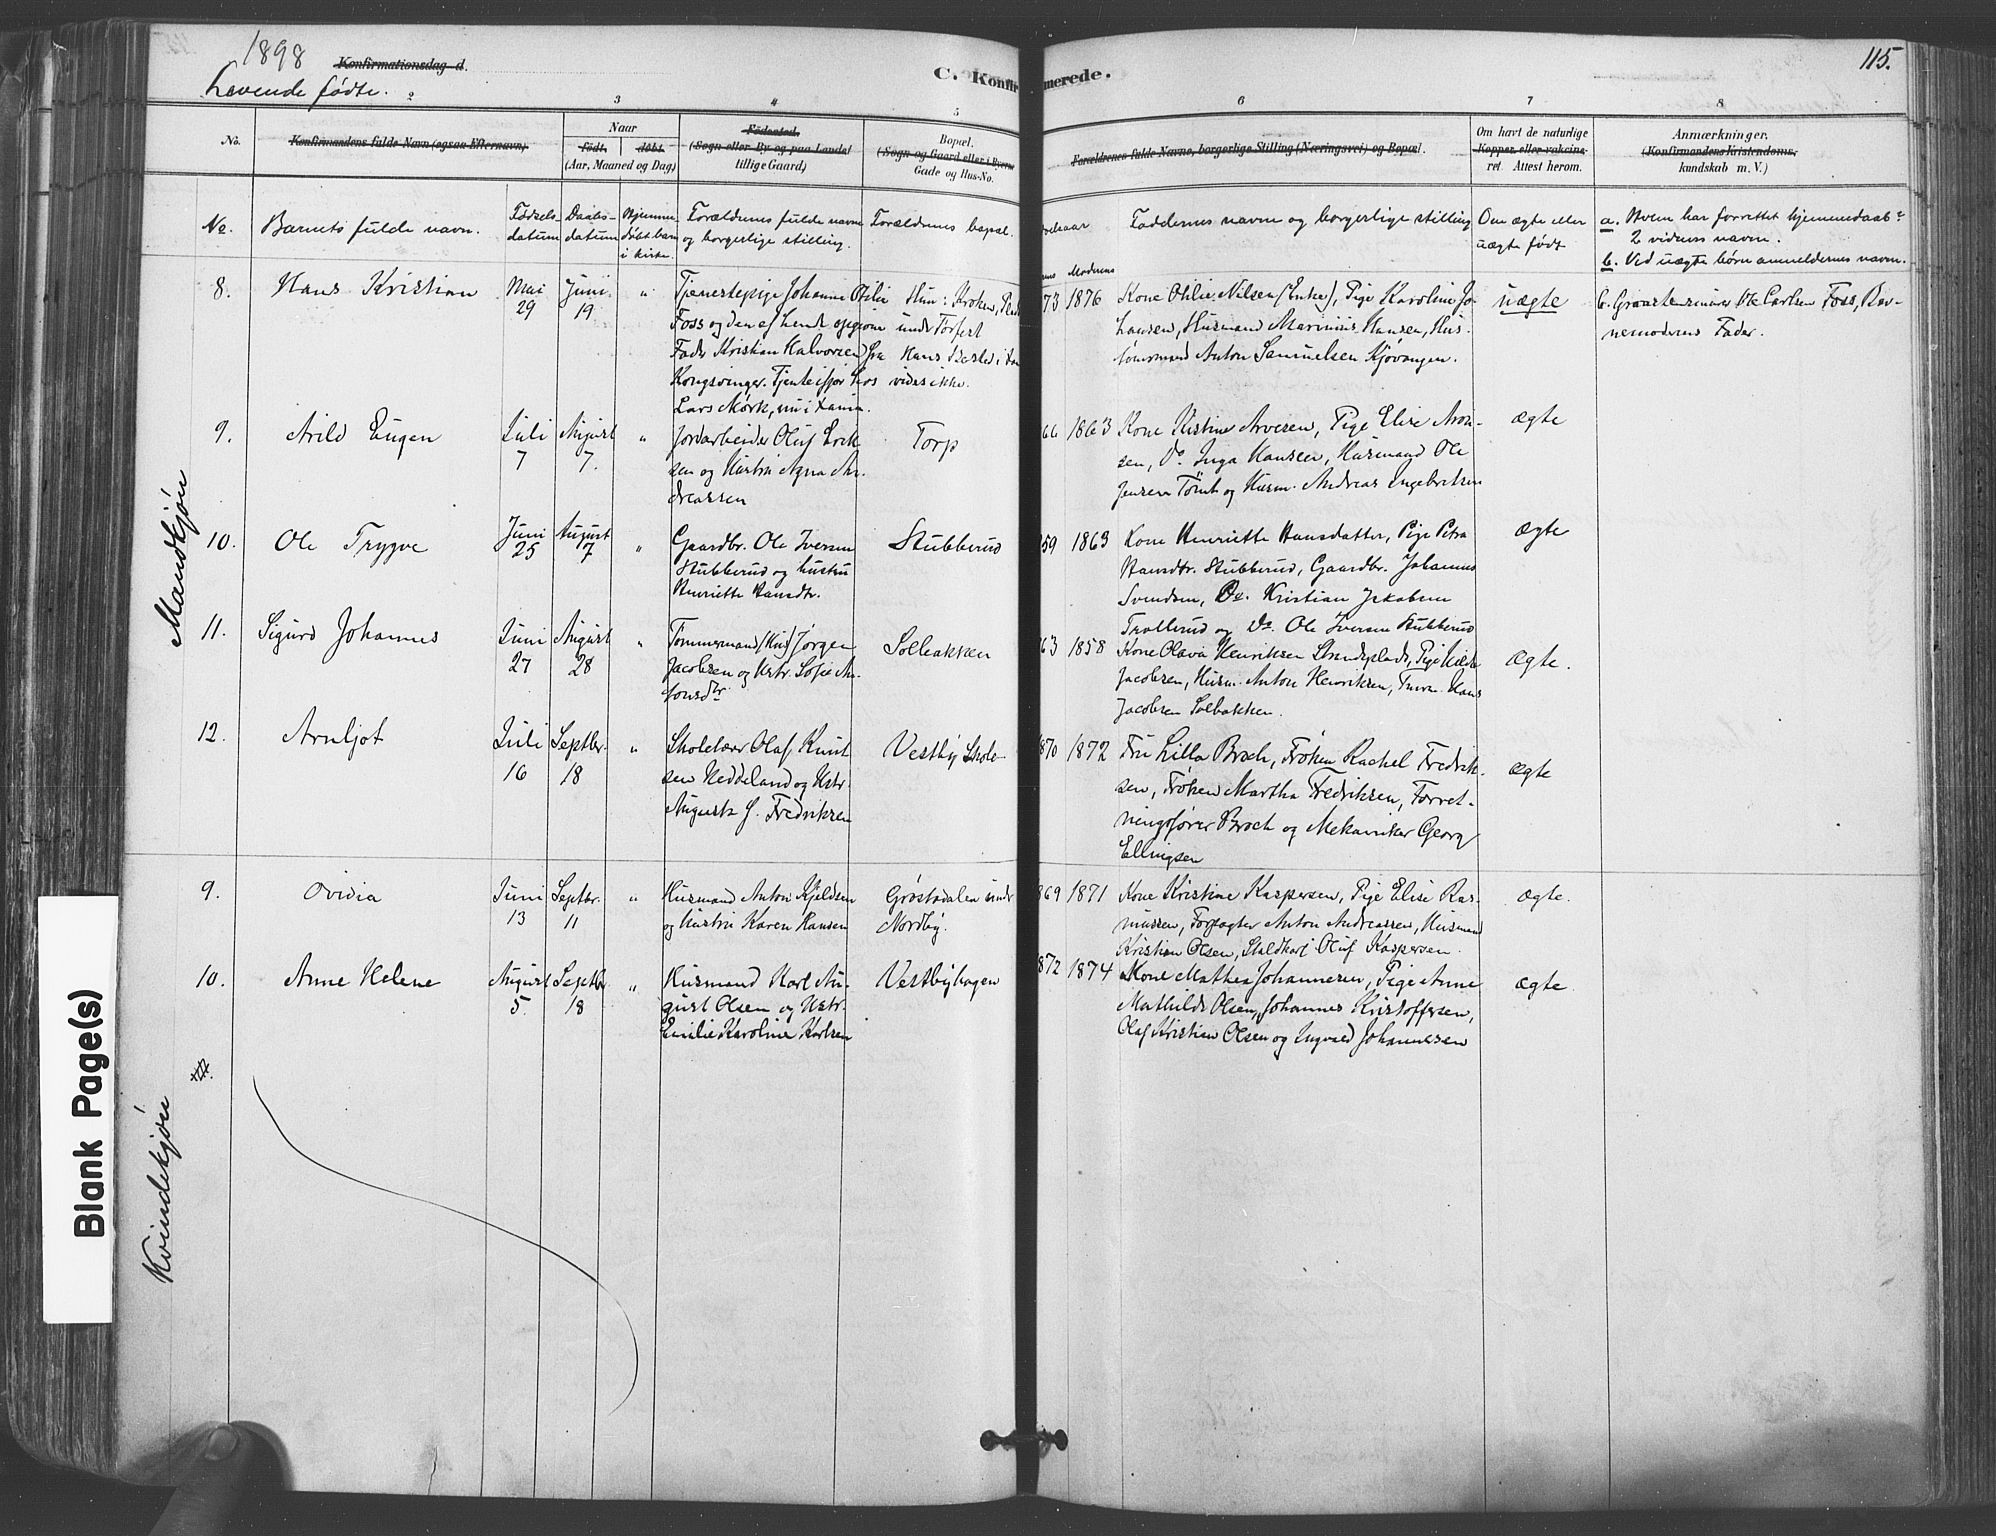 1898
Konfirmationsdag d.
Levende fødte.
C. Konfirmerede.
115.
2 3 4 5 6 7 8
No.
Konfirmandens fulde Navn (ogsaa Efternavn).
Naar
født. døbt.
(Aar, Maaned og Dag)
Fødested.
(Sogn eller By og paa Landet
tillige Gaard)
Bopæl.
(Sogn og Gaard eller i Byerne
Gade og Hus-No.
Forældrenes fulde Navne, borgerlige Stilling (Næringsvei) og Bopæl.
Om havt de naturlige
Kopper eller vaksine-
ret Attest herom.
Anmærkninger.
(Konfirmandens Kristendoms-
kundskab m. V.)
No. Barnets fulde navn.
Fødsels-
datum
Daabs-
datum
Hjemme-
døbt barn
i kirke.
Forældrenes fulde navne
og borgerlige stilling.
Forældrenes bopæl.
Moderens
Faddernes navne og borgerlige stilling
Om ægte eller
uægte født
a. Hvem har forrettet hjemmedaab?
2 vidners navne.
b. Ved uægte børn anmeldernes navn.
Mandkjøn
8. Hans Kristian
Mai
29
Juni
19
"
Tjenestepige Johanne Otilie
Foss og den af hende opgivne
Fader Kristian Halvorsen fra
Kongsvinger. Tjente ifjor hos
Lars Mørk, nu i
Hun: Kroken,
under Torpet
Hans
vides ikke.
73 1876
Kone Othlie Nilsen (Enke), Pige Karoline Jo-
hansen, Husmand Marinius Hansen, Hus-
mand Anton Samuelsen Kjøvangen.
uægte
b. Graastensminør Ole Carlsen Foss, Bar-
nemoderens Fader.
9. Arild Eugen
Juli
7
August
7.
"
Jordarbeider Oluf Erik-
sen og Hustru Agna An-
dreassen
Torp
66 1863
Kone Kristine Arvesen, Pige Elise Aron-
sen, Do. Inga Hansen, Husmand Ole
Jensen Tømt og Husm. Andreas Ingebretsen
ægte
10. Ole Trygve
Juni
25
August
7
"
Gaardbr. Ole Iversen
Stubberud og hustru
Henriette Hansdtr.
Stubberud
59 1863
Kone Henriette Hansdatter, Pige Petra
Hansdtr. Stubberud, Gaardbr. Johannes
Svendsen, Do. Kristian Jakobsen
Trollerud og Do. Ole Iversen Stubberud
ægte
11. Sigurd Johannes
Juni
27
August
28
"
Tømmermand (Hus) Jørgen
Jacobsen og Hstr. Sofie An-
tonsdtr.
Solbakken
63 1858
Kone Olava Henriksen Strandeplads, Pige Hilda
Jacobsen, Husm. Anton Henriksen, Tmrm. Hans
Jacobsen Solbakken.
ægte.
12. Arnljot
Juli
16
Septbr.
18
"
Skolelærer Olaf Knut-
sen Heddeland og Hstr.
Augusta G. Fredriksen
Vestby Skole
870 1872
Fru Lilla Broch, Frøken Rachel Fredrik-
sen, Frøken Martha Fredriksen, Forret-
ningsfører Broch og Mekaniker Georg
Ellingsen
ægte
Kvindekjøn
9. Ovidia
Juni
13
Septbr.
11
"
Husmand Anton Kjeldsen
og Hustru Karen Hansen
Grøstadalen under
Nordby.
869 1871
Kone Kristine Kaspersen, Pige Elise Ras-
mussen, Forpagter Anton Andreassen, Husmand
Kristian Olsen, Staldkarl Oluf Kaspersen.
ægte.
10. Anne Helene
August
5.
Septbr
18
"
Husmand Karl Au-
gust Olsen og Hstr.
Emilie Karoline Karlsen
Vestbyhagen
872 1874
Kone Mathea Johannesen, Pige Anne
Mathilde Olsen, Johannes Kristoffersen,
Olaf Kristian Olsen og Ingvald Johannesen
ægte.
Blank Page(s)